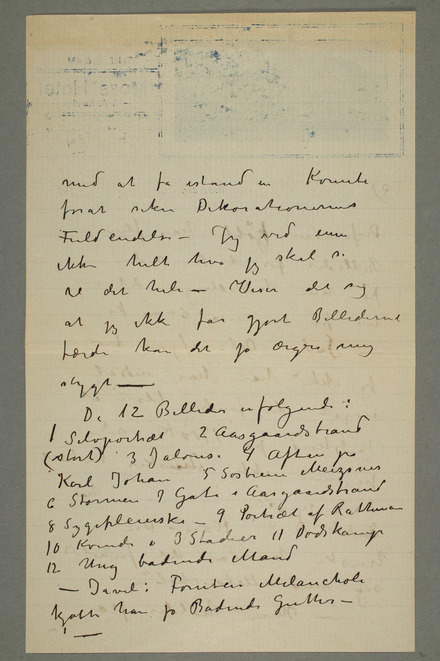 med at få istand en Komite
forat sikre Dekorationernes
Fuldendelse – Jeg ved ennu
ikke helt hva jeg skal si
til det hele – Viser det sig
at jeg ikke får gjort Billederne
færdig kan det jo ærgre mig
stygt —
De 12 Billeder er følgende:
1 Selvportræt 2 Aasgaardstrand
(stort) 3 Jalousi 4 Aften på
Karl Johan 5 Søstrene Meizsner
6 Stormen 7 Gate i Aasgaardstrand
8 Sygeplejerske – 9 Portræt af Rathenau
10 Kvinde i 3 Stadier 11 Dødskamp
12 Ung badende Mand
– Foruten Melancholi
kjøbte han jo Badende Gutter –